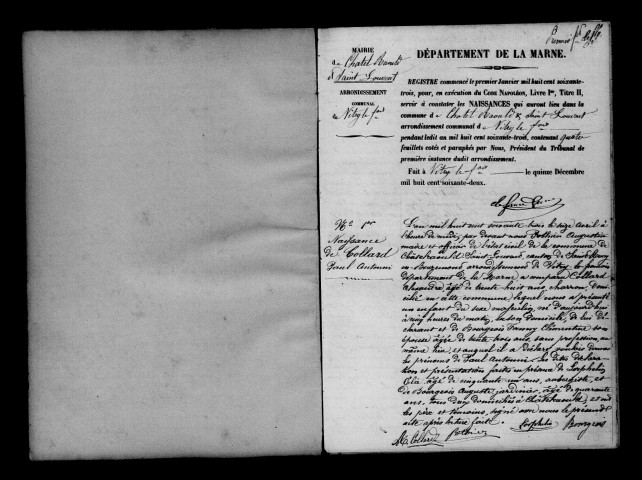 Premier
MAIRIE
de Chatel Raould
St Saint-Louvent
ARRONDISSEMENT
COMMUNAL
de Vitry le fois
DÉPARTEMENT DE LA MARNE.
REGISTRE commencé le premier Janvier mil huit cent soixante-
trois, pour, en exécution du CODE NAPOLÉON, Livre Ier, Titre II,
servir à constater les NAISSANCES qui auront lieu dans la
commune d e Chatel Raould St Saint Louvent
arrondissement communal d e Vitry le fois
pendant ledit an mil huit cent soixante-trois, contenant quatre
feuillets cotés et paraphés par Nous, Président du Tribunal de
première instance dudit arrondissement.
Fait à Vitry-le-fois le quinze Décembre
mil huit cent soixante-deux.
No 1er
Naissance
de Collard
Paul Antonni
L'an mil huit cent soixante trois le seize avril à
l'heure de midi, par devant nous Pothier Augustin
maire et officier de l'état civil de la commune de
Châtelraould Saint-Louvent, canton de Saint Remy
en Bouzemont arrondissement de Vitry le fois
département de la Marne a comparu Collard
Alexandre âgé de trente huit ans, charron, domi-
cilié en cette commune lequel nous a présenté
un enfant du sexe masculin, né d'aujourd'hui
à cinq heures du matin, en son domicile, de lui dé-
clarant et de Bourgeois Fanny Clémentine son
épouse âgée de trente trois ans sans profession, au
même lieu, et auquel il a déclaré vouloir donner
les prénoms de Paul Antonni. les dites déclara-
tion et présentation faites en présence de
âgé de cinquante un ans, aubergiste, et
de Bourgeois Auguste jardinier, âgé de quarante
ans, tous deux domiciliés à Châtelraould, et ont
les père et témoins, signé avec nous le présent
acte après lecture faite.
Collard Pothier Bourgeois